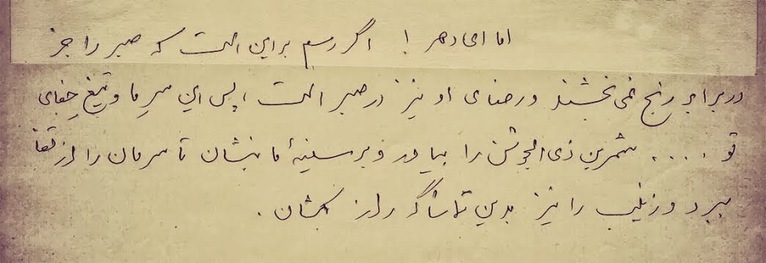 اما ای دهر ! اگر رسم بر این است که صبر را جز
در برابر رنج نمی‌بخشند و رضای او نیز در صبر است ، پس این سر ما و تیغ جفای
تو .... شمربن ذی الجوشن را بیاور و بر سینهٔ ما بنشان تا سرمان را از قفا
ببرد و زینب را نیز بدین تماشاگه راز بکشان .